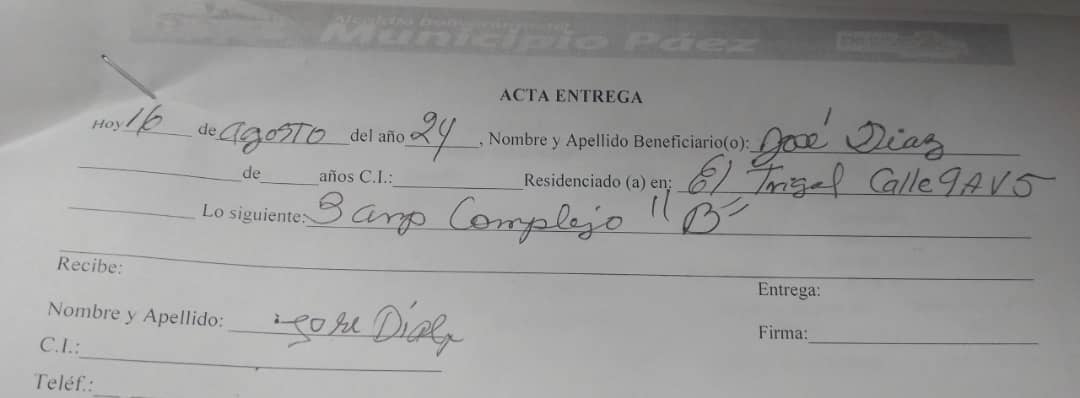 Alcaldía Bolivariana del
Municipio Páez
ACTA ENTREGA
Hoy 16 de agosto del año 24, Nombre y Apellido Beneficiario(o): José Diaz
de años C.I.: Residenciado (a) en: El Trigal Calle 9 AV 5
Lo siguiente: 3 amp Complejo "B"
Recibe:
Entrega:
Nombre y Apellido: Jose Díaz
Firma:
C.I.:
Teléf.: